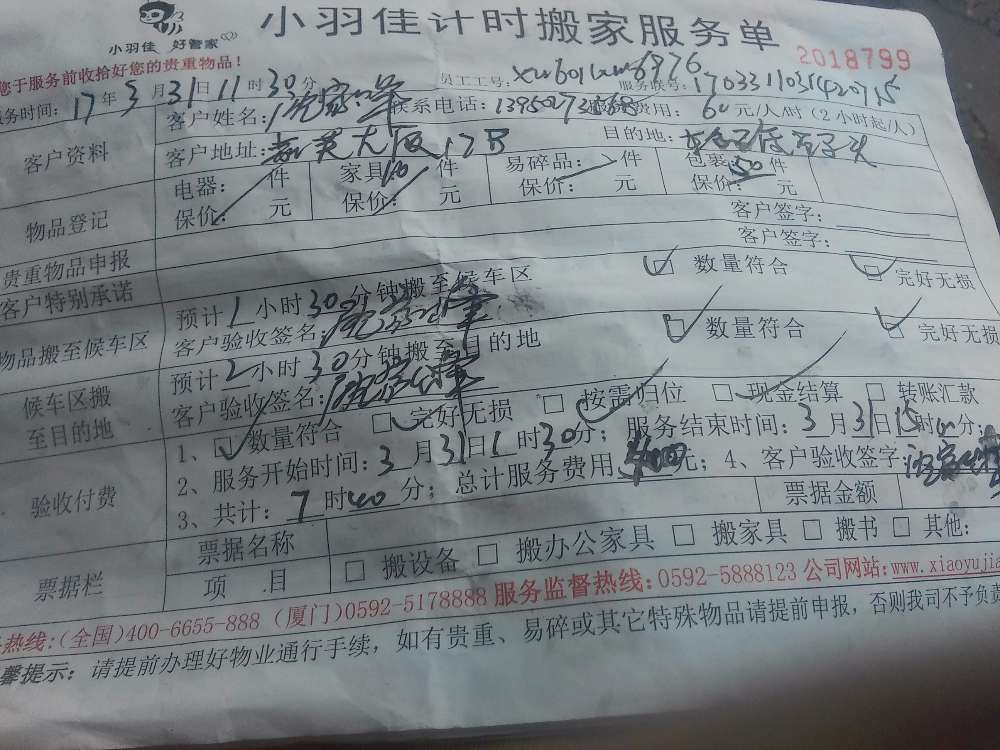 小羽佳计时搬家服务单
小羽佳 好管家
2018799
您于服务前收拾好您的贵重物品!
员工工号: 服务联号:
务时间: 17年3月31日11时30分
客户资料
客户姓名: 联系电话: 费用: 60元/人/时(2小时起/人)
客户地址: 大厦17B 目的地:
物品登记
电器: 件 家具 件 易碎品: 件 包裹:50件
保价: 元 保价: 元 保价: 元 保价: 元
贵重物品申报 客户签字:
客户特别承诺 客户签字:
物品搬至候车区
预计1小时30分钟搬至候车区 数量符合 完好无损
客户验收签名:
候车区搬
至目的地
预计2小时30分钟搬至目的地 数量符合 完好无损
客户验收签名:
验收付费
1、 数量符合 完好无损 按需归位 现金结算 转账汇款
2、服务开始时间:3月31日 时30分; 服务结束时间:3月31日15时 分;
3、共计:7时40分; 总计服务费用 元; 4、客户验收签字:
票据栏
票据名称 票据金额
项 目 搬设备 搬办公家具 搬家具 搬书 其他:
热线:(全国)400-6655-888 (厦门)0592-5178888 服务监督热线:0592-5888123 公司网站:www.xiaoyujia
馨提示: 请提前办理好物业通行手续, 如有贵重、易碎或其它特殊物品请提前申报, 否则我司不予负责